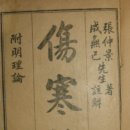 張仲景著
成無己先生註解
傷寒
附明理論